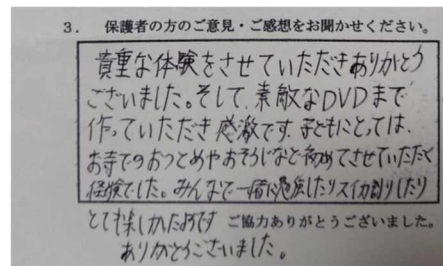 3． 保護者の方のご意見・ご感想をお聞かせください。
貴重な体験をさせていただきありがとう
ございました。そして、素敵なDVDまで
作っていただき感激です。子どもにとっては、
お寺でのおつとめやおそうじなど初めてさせていただく
経験でした。みんなで一緒に過ごしたりスイカ割りしたり
とても楽しかったようです ご協力ありがとうございました。
ありがとうございました。